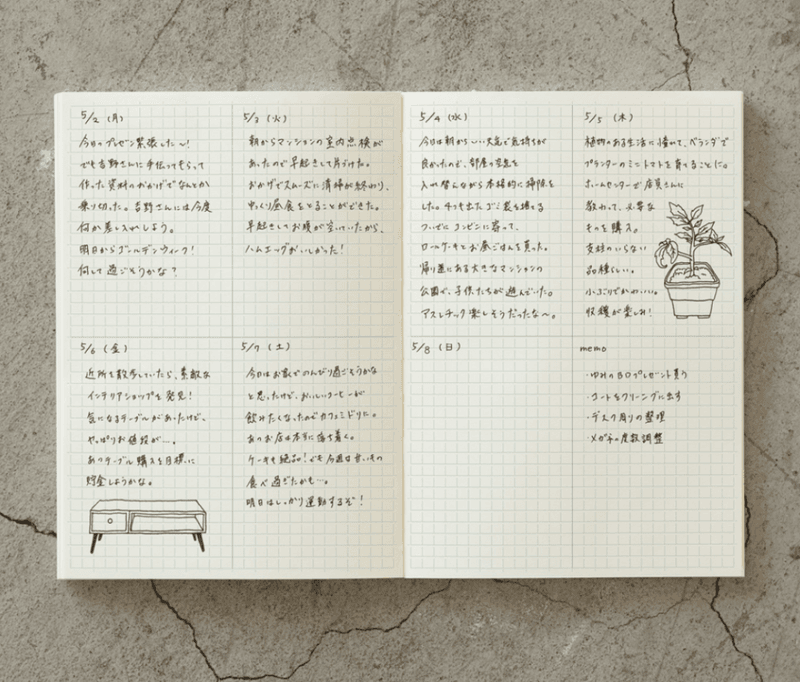 5/2 (月)
今日のプレゼン緊張した〜!
でも吉野さんに手伝ってもらって
作った資料のおかげでなんとか
乗り切った。吉野さんには今度
何か差し入れしよう。
明日からゴールデンウィーク!
何して過ごそうかな?
5/3 (火)
朝からマンションの室内点検が
あったので早起きして片づけた。
おかげでスムーズに清掃が終わり、
ゆっくり昼食をとることができた。
早起きしてお腹が空いていたから、
ハムエッグがおいしかった!
5/4 (水)
今日は朝からいい天気で気持ちが
良かったので、部屋の空気を
入れ替えながら本格的に掃除を
した。4つも出たゴミ袋を捨てる
ついでにコンビニに寄って、
ロールケーキとお昼ごはんを買った。
帰り道にある大きなマンションの
公園で、子供たちが遊んでいた。
アスレチック楽しそうだったな〜。
5/5 (木)
植物のある生活に憧れて、ベランダで
プランターのミニトマトを育てることに。
ホームセンターで店員さんに
教わって、必要な
ものを購入。
支柱のいらない
品種らしい。
小ぶりでかわいい。
収穫が楽しみ!
5/6 (金)
近所を散歩していたら、素敵な
インテリアショップを発見!
気になるテーブルがあったけど、
やっぱりお値段が…。
あのテーブル購入を目標に
貯金しようかな。
5/7 (土)
今日はお家でのんびり過ごそうかな
と思ったけど、おいしいコーヒーが
飲みたくなったのでカフェミドリに。
あのお店は本当に落ち着く。
ケーキも絶品!でも今週は甘いもの
食べ過ぎたかも…。
明日はしっかり運動するぞ!
5/8 (日)
memo
・ゆみのBDプレゼント買う
・コートをクリーニングに出す
・デスク周りの整理
・メガネの度数調整